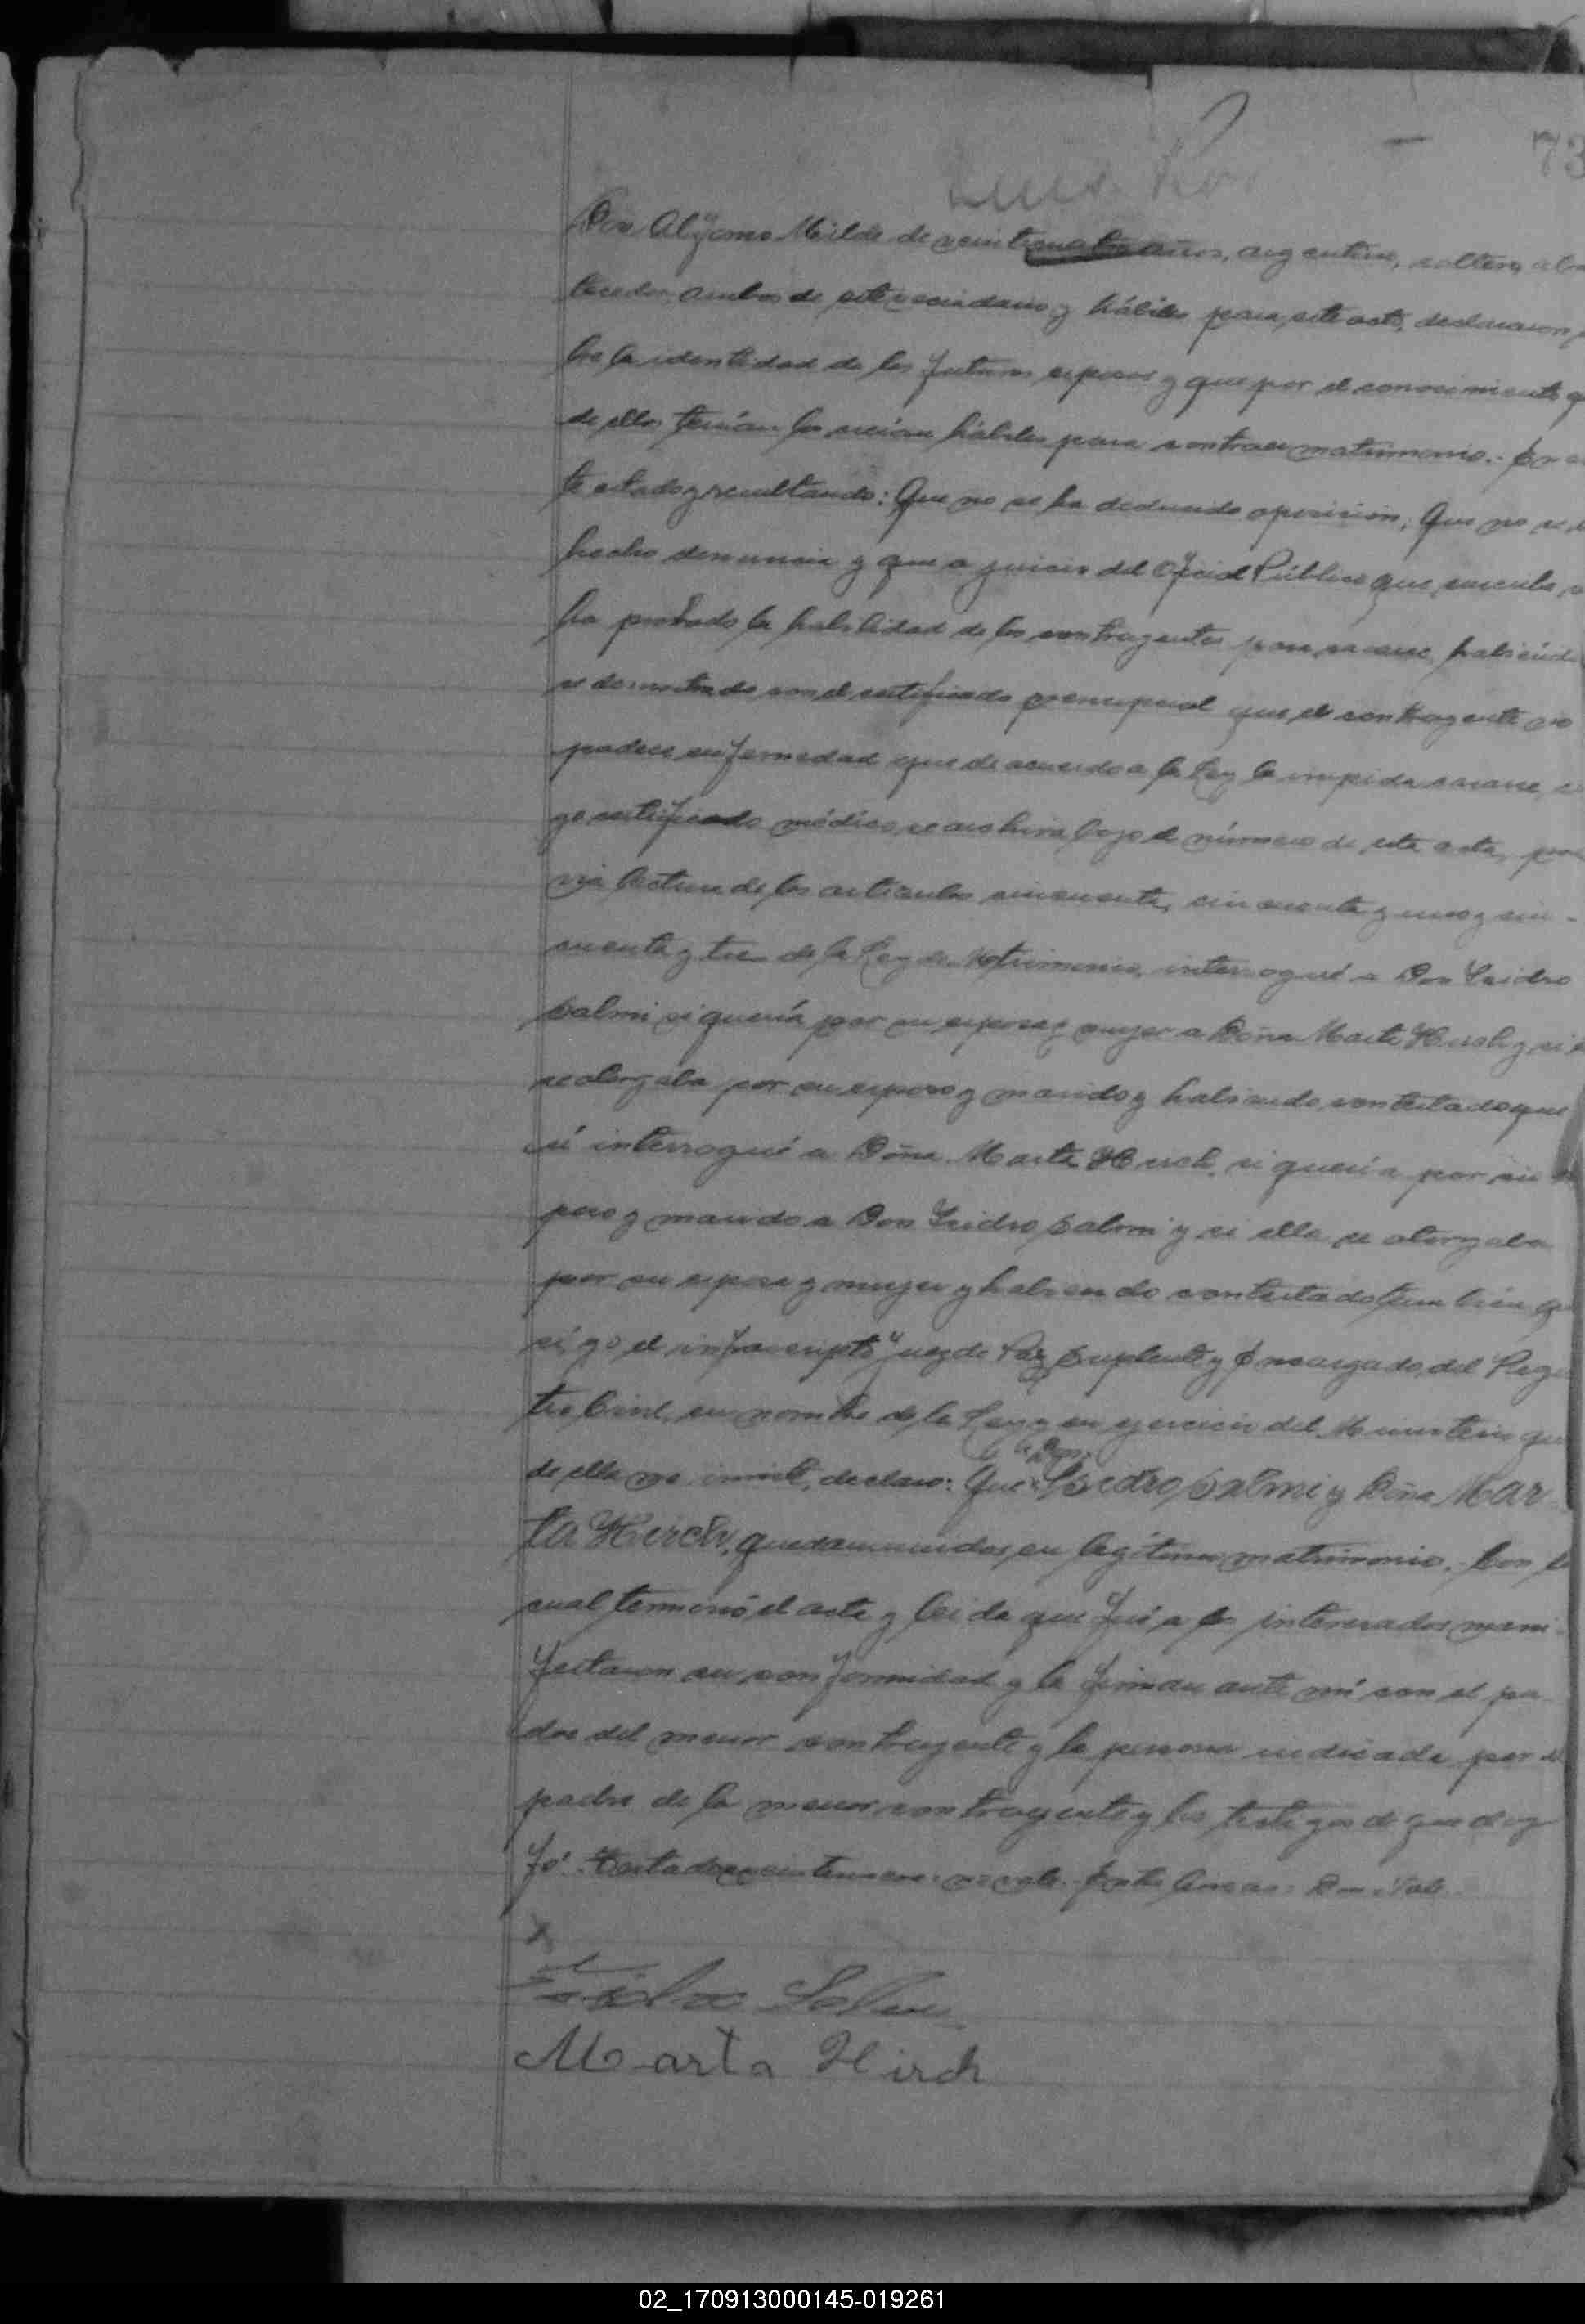 73
Don Alfonso Milde de veinticuatro años, argentino, soltero, abas
tecedor, ambos de este vecindario y hábiles para este acto, declararon
la identidad de los futuros esposos y que por el conocimiento q
de ellos tenían los creían hábiles para contraer matrimonio.- En es
te estado y resultando: Que no se ha deducido oposición, Que no se
hecho denuncia y que a juicio del Oficial Público que suscribe, s
ha probado la habilidad de los contrayentes para casarse, habiéndo
se demostrado con el certificado prenupcial que el contrayente no
padece enfermedad que de acuerdo a la Ley le impida casarse, cu
yo certificado médico, se archiva bajo el número de esta acta, pre
via lectura de los artículos cincuenta, cincuenta y uno y cin-
cuenta y tres de la Ley de Matrimonio, interrogué a Don Isidro
Salmi si quería por su esposa y mujer a Doña Marta Hirch y si
se otorgaba por su esposo y marido y habiendo contestado que
sí interrogué a Doña Marta Hirch, si quería por su es
poso y marido a Don Isidro Salmi y si ella se otorgaba
por su esposa y mujer y habiendo contestado también q
sí, yo el infrascripto Juez de Paz Suplente y Encargado del Regis
tro Civil, en nombre de la Ley y en ejercicio del Ministerio que
de ella me inviste, declaro: Que "Don" Isidro Salmi y Doña Mar
ta Hirch, quedan unidos en legítimo matrimonio.- Con lo
cual terminó el acta y leída que fué a los interesados mani-
festaron su conformidad y la firman ante mí con el pa-
dre del menor contrayente y la persona indicada por el
padre de la menor contrayente y los testigos de que doy
fé. Testado: no vale. Entre líneas: Don: Vale.
x
Isidro
Marta Hirch
02_170913000145-019261